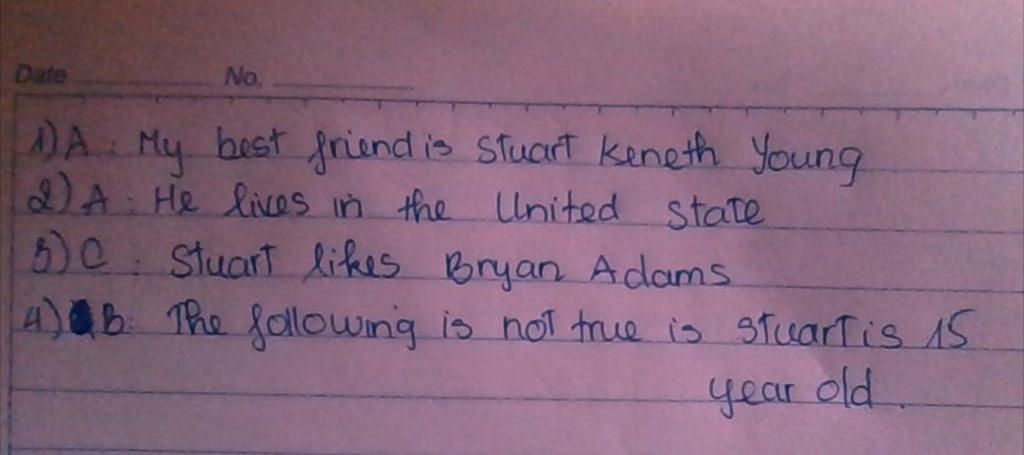 Date No.
1) A : My best friend is Stuart Keneth Young
2) A : He lives in the United State
3) C : Stuart likes Bryan Adams
4) B : The following is not true is Stuart is 15
year old.